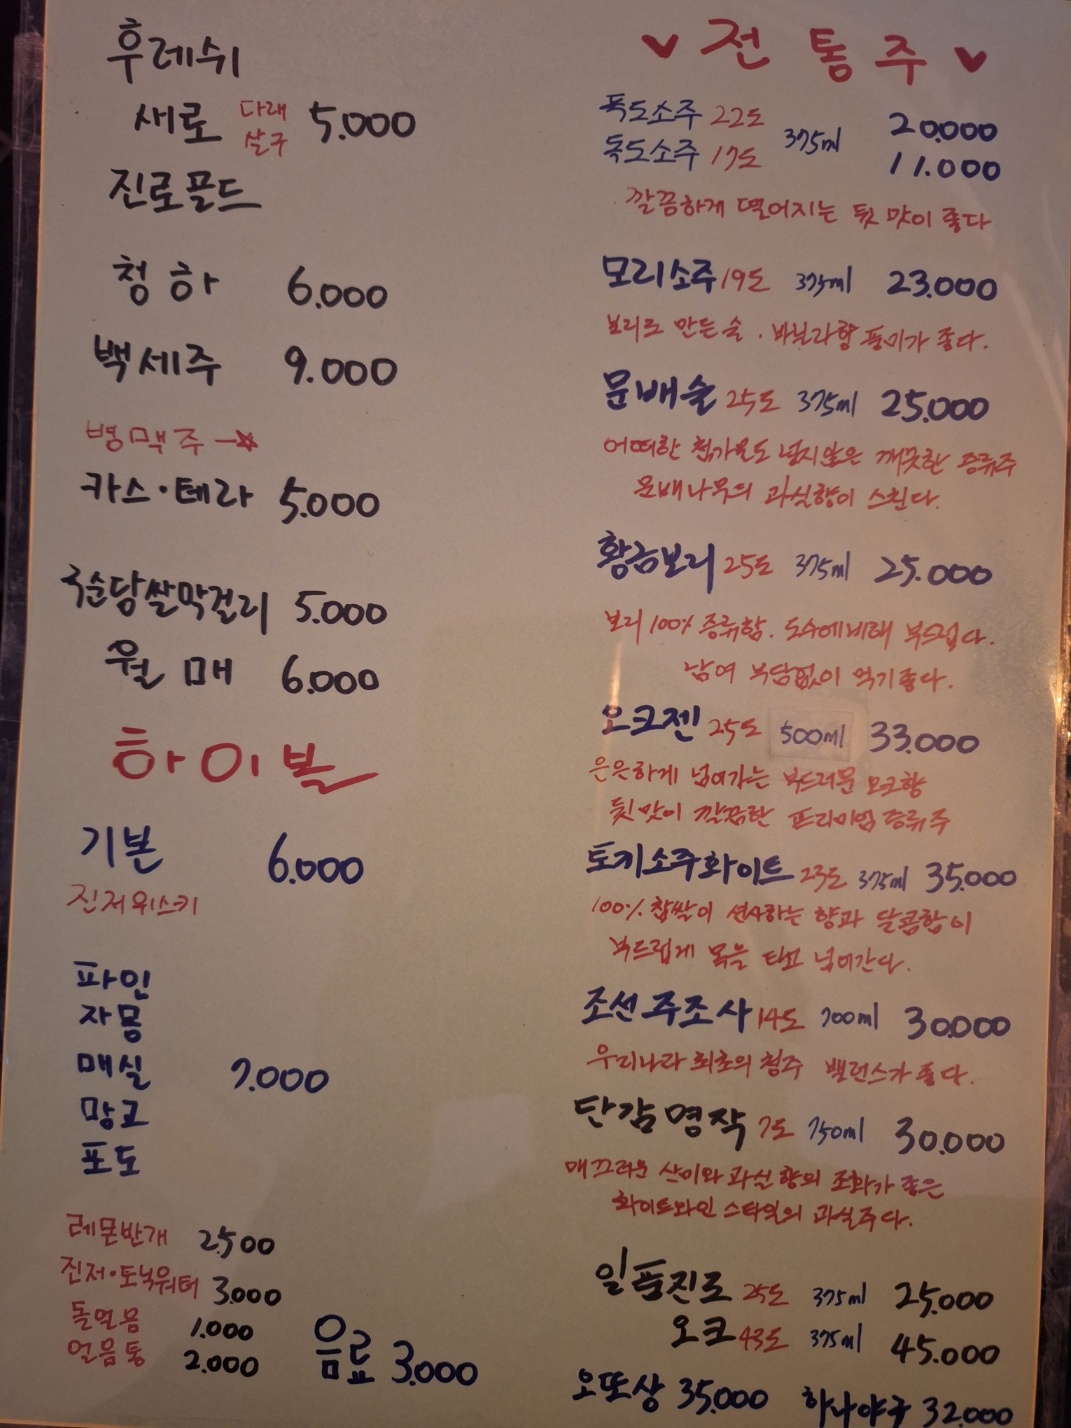 후레쉬
새로 다래 살구 5.000
진로골드
청하 6.000
백세주 9.000
병맥주 →
카스·테라 5.000
국순당쌀막걸리 5.000
월매 6.000
하이볼
기본 6.000
진저위스키
파인
자몽
매실 7.000
망고
포도
레몬반개 2,500
진저·토닉워터 3.000
돌얼음 1.000
얼음통 2.000
음료 3.000
♥ 전통주 ♥
독도소주 22도 20,000
375ml
독도소주 17도 11.000
깔끔하게 떨어지는 뒷 맛이 좋다
모리소주 19도 375ml 23.000
보리로 만든 술. 바닐라향 풍미가 좋다.
문배술 25도 375ml 25.000
어떠한 첨가물도 넣지않은 깨끗한 증류주
문배나무의 과실향이 스친다.
황금보리 25도 375ml 25.000
보리 100% 증류함. 도수에비해 부드럽다.
남여 부담없이 먹기좋다.
오크젠 25도 500ml 33.000
은은하게 넘어가는 부드러운 오크향
뒷맛이 깔끔한 프리미엄 증류주
토끼소주화이트 23도 375ml 35.000
100% 찹쌀이 선사하는 향과 달콤함이
부드럽게 목을 타고 넘어간다.
조선주조사 14도 700ml 30.000
우리나라 최초의 청주 밸런스가 좋다.
단감명작 7도 750ml 30.000
매끄러운 산미와 과실향의 조화가 좋은
화이트와인 스타일의 과실주다.
일품진로 25도 375ml 25.000
오크 43도 375ml 45.000
오또상 35.000 하나야구 32.000